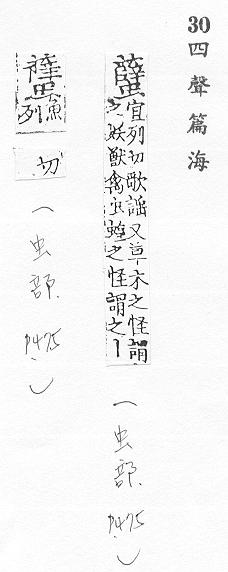 30 四聲篇海
宜列切歌謠又草木之怪謂
之妖獸禽虫蝗之怪謂之丨
(虫部 P475)
魚列
切
(虫部 P475)